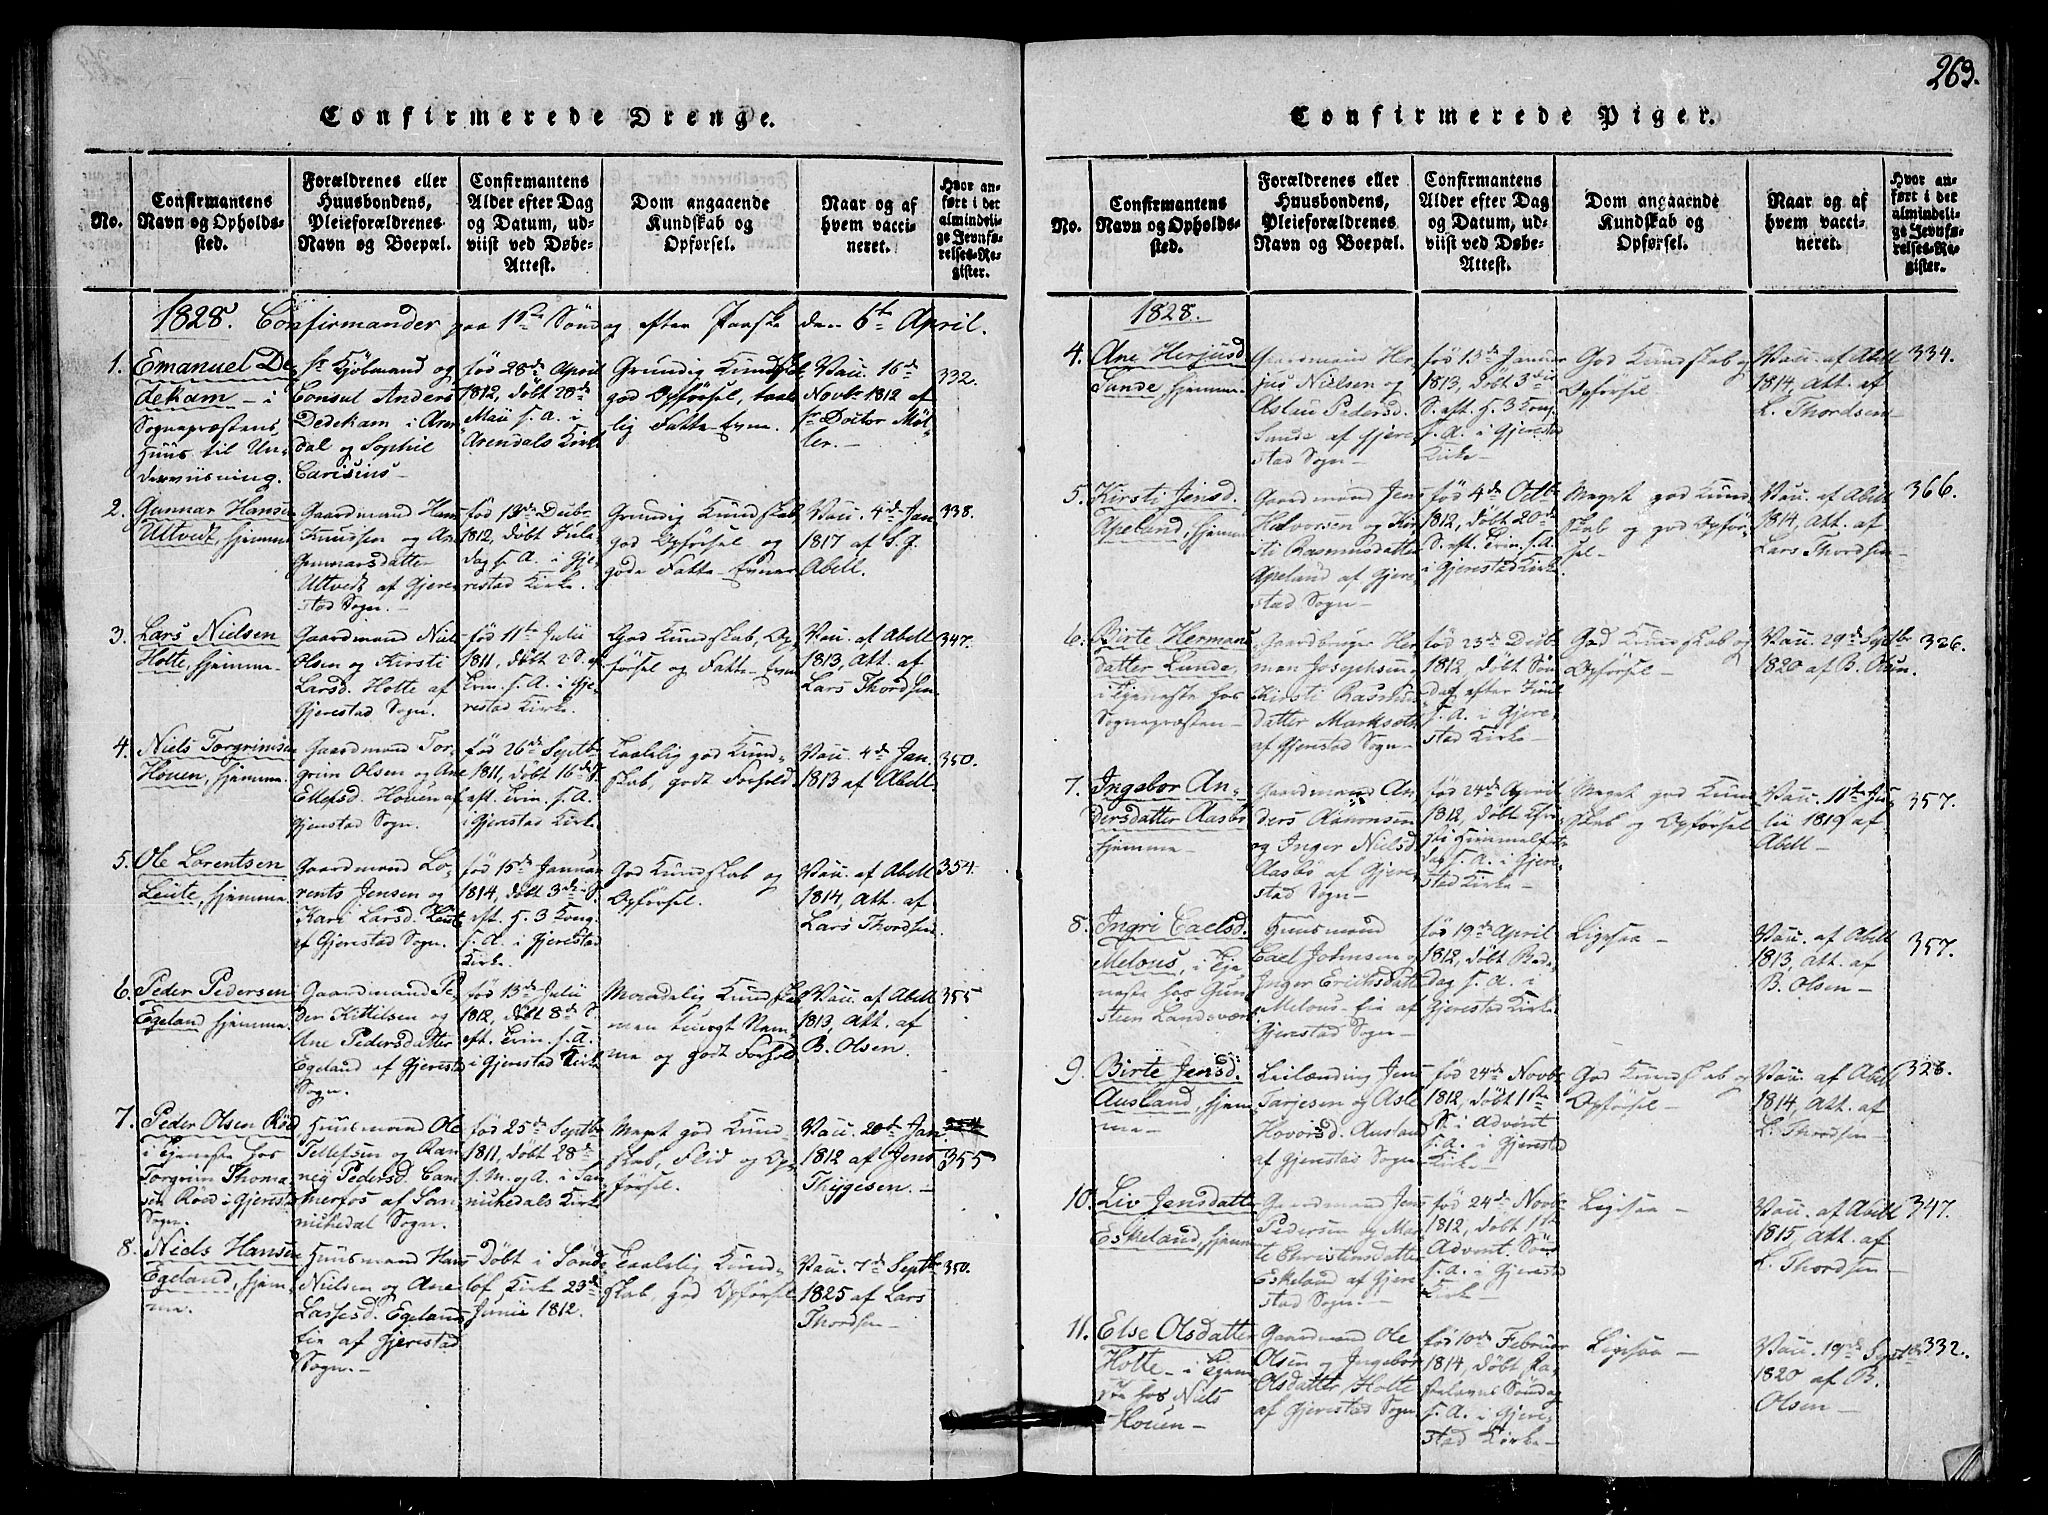 263.
Confirmerede Drenge.
No.
Confirmantens
Navn og Opholds-
sted.
Forældrenes eller
Huusbondens,
Pleieforældrenes
Navn og Boepæl.
Confirmantens
Alder efter Dag
og Datum, ud-
viist ved Døbe-
Attest.
Dom angaaende
Kundskab og
Opførsel.
Naar og af
hvem vacci-
neret.
Hvor an-
ført i det
almindeli-
ge Jevnfø-
relses-Re-
gister.
1828. Confirmander paa 1ste Søndag efter Paaske den 6te April.
1.
Emanuel De-
dekam - i
Sognepræstens
Huus til Un-
derviisning.
Hr Kjøbmand og
Consul Anders
Dedekam i Aren-
dal og Sophie
Carisius
fød 28de April
1812, døbt 28de
Maii s. A. i
Arendals Kirke
Grundig Kundskab,
god Opførsel, taae-
lig Fatte-Evne.
Vacc. 16de
Novbr 1812 af
Hr Doctor Møl-
ler.
332.
2.
Gunnar Hansen
Ultvedt, hjemme
Gaardmand Hans
Knudsen og Ane
Gunnarsdatter
Ultvedt af Gjere-
stad Sogn.
1812, døbt Jule-
dag s. A. i Gje-
restad Kirke.
Grundig Kundskab
god Opførsel og
gode Fatte-Evner
Vacc. 4de Jan
1817 af
Abell
338.
3.
Lars Nielsen
Holte, hjemme
Gaardmand Niels
Olsen og Kirsti
Larsd. Holte af
Gjerestad Sogn.
fød 11te Julii
1811, døbt 2 S. ef
Trin. s. A. i Gje-
restad Kirke.
God Kundskab, Op-
førsel og Fatte-Evne
Vacc. af Abell
1813, Att. af
Lars Thordsen
347.
4.
Niels Torgrimsen
Hoven, hjemme
Gaardmand Tor-
grim Olsen og Ane
Ellefsd. Hoven af
Gjerestad Sogn.
fød 26de Septbr
1811, døbt 16de S.
eft. Trin. s. A.
i Gjerestad Kirke.
Taalelig god Kund-
skab, godt Forhold
Vacc. 4de Jan.
1813 af Abell
350.
5.
Ole Lorentsen
Leite, hjemme
Gaardmand Lo-
rents Jensen og
Kari Larsd. Leite
af Gjerestad Sogn.
fød 15de Januar
1814, døbt 3die S.
eft. H. 3 Kong.
s. A. i Gjerestad
Kirke.
God Kundskab og
Opførsel.
Vacc. af Abell
1814, Att. af
Lars Thordsen
354.
6.
Peder Pedersen
Egeland hjemme.
Gaardmand Pe-
der Kittilsen og
Ane Pedersdatter
Egeland af Gjerestad
Sogn.
fød 13de Julii
1812, døbt 8de S.
eft. Trin. s. A.
i Gjerestad Kirke
Maadelig Kundskab
men svagt Nem-
me og godt Forhold
Vacc. af Abell
1813, Att. af
B. Olsen.
355
7.
Peder Olsen Röd
i Tjeneste hos
Torgrim Thoma-
sen Röed i Gjerestad
Sogn.
Huusmand Ole
Tellefsen og Ran-
nei Pedersd. Cam-
merfos af San-
nikedal Sogn.
fød 25de Septbr
1811, døbt 28de
s. M. og A. i San-
nikedals Kirke
Meget god Kund-
skab, Flid og Op-
førsel.
Vacc. 20de Jan.
1812 af Jens
Thygesen.
355
8.
Niels Hansen
Egeland, hjem-
me.
Huusmand Hans
Nielsen og Ane
Lassesd. Egelands
Eie af Gjerestad
Sogn.
Døbt i Sønde-
lof Kirke 23de
Junii 1812.
Taalelig Kund-
skab, god Opførsel
Vacc. 7de Septbr
1825 af Lars
Thordsen
350.
Confirmerede Piger.
No.
Confirmantens
Navn og Opholds-
sted.
Forældrenes eller
Huusbondens,
Pleieforældrenes
Navn og Boepæl.
Confirmantens
Alder efter Dag
og Datum, ud-
viist ved Døbe-
Attest.
Dom angaaende
Kundskab og
Opførsel.
Naar og af
hvem vacci-
neret.
Hvor an-
ført i det
almindeli-
ge Jevnfø-
relses-Re-
gister.
1828.
4.
Ane Herjusd
Sande, hjemme
Gaardmand Her-
jus Nielsen og
Aslau Pedersd.
Sande af Gjere-
stad Sogn
fød 13de Januar
1813, døbt 3die
S. eft. H. 3 Kong.
s. A. i Gjerestad
Kirke
God Kundskab og
Opførsel
Vacc. af Abell
1814, Att. af
L. Thordsen
334.
5.
Kirsti Jensd.
Apeland, hjemme
Gaardmand Jens
Halvorsen og Kir-
sti Rasmusdatter
Apeland af Gjere-
stad Sogn
fød 4de Octbr
1812, døbt 20de
S. eft. Trin. s. A.
i Gjerestad Kirke
Meget god Kund-
skab og god Opfør-
sel
Vacc. af Abell
1814, Att. af
Lars Thordsen
366.
6.
Birte Hermans
datter Lunde,
i Tjeneste hos
Sognepræsten
Gaardbruger Her-
man Josephsen
Kirsti Rasmus-
datter Marksoth
af Gjerestad Sogn
fød 23de Decbr
1812, døbt Søn-
dag efter Juul
s. A. i Gjere-
stad Kirke
God Kundskab og
Opførsel
Vacc. 29de Septbr
1820 af B. Olsen.
326.
7.
Ingebor An-
dersdatter Aasbö
hjemme
Gaardmand An-
ders Aanonsen
og Inger Nielsd
Aasbö af Gjere-
stad Sogn
fød 24de April
1812, døbt Chri-
sti Himmelfarts
dag s. A. i Gjere-
stad Kirke
Meget god Kund
skab og Opførsel
Vacc. 11te Ju-
lii 1819 af
Abell
357.
8.
Ingri Caelsd.
Melous, i Tje-
neste hos Gun-
steen Landsverk
Huusmand
Cael Johnsen og
Inger Erichsdatter
Melous-Eie af
Gjerestad Sogn
fød 19de April
1812, døbt Bede-
dag s. A. i
Gjerestad Kirke
Ligesaa
Vacc. af Abell
1813, Att. af
B. Olsen
357.
9.
Birte Jensd.
Ausland, hjem-
me
Leilænding Jens
Tarjesen og Asle
Hovorsd. Ausland
af Gjerestad Sogn
fød 24de Novbr
1812, døbt 1ste
S. i Advent
s. A. i Gjerestad
Kirke
God Kundskab og
Opførsel
Vacc. af Abell
1814, Att. af
L. Thordsen
326.
10.
Liv Jensdatter
Eskeland, hjemme
Gaardmand Jens
Pedersen og Mar-
te Christensdatter
Eskeland af Gjere
stad Sogn.
fød 24de Novbr
1812, døbt 1ste
Advent. Søn.
s. A. i Gjerestad
Kirke
Ligesaa
Vacc. af Abell
1815, Att. af
L. Thordsen
347.
11.
Else Olsdatter
Holte i Tjene-
ste hos Niels
Hoven
Gaardmand Ole
Olsen og Ingebor
Olsdatter Holte
af Gjerestad Sogn
fød 10de Februar
1814, døbt Fa-
stelavns Søndag
s. A. i Gjere-
stad Kirke
Ligesaa
Vacc. 19de Septbr
1820 af B.
Olsen
332.